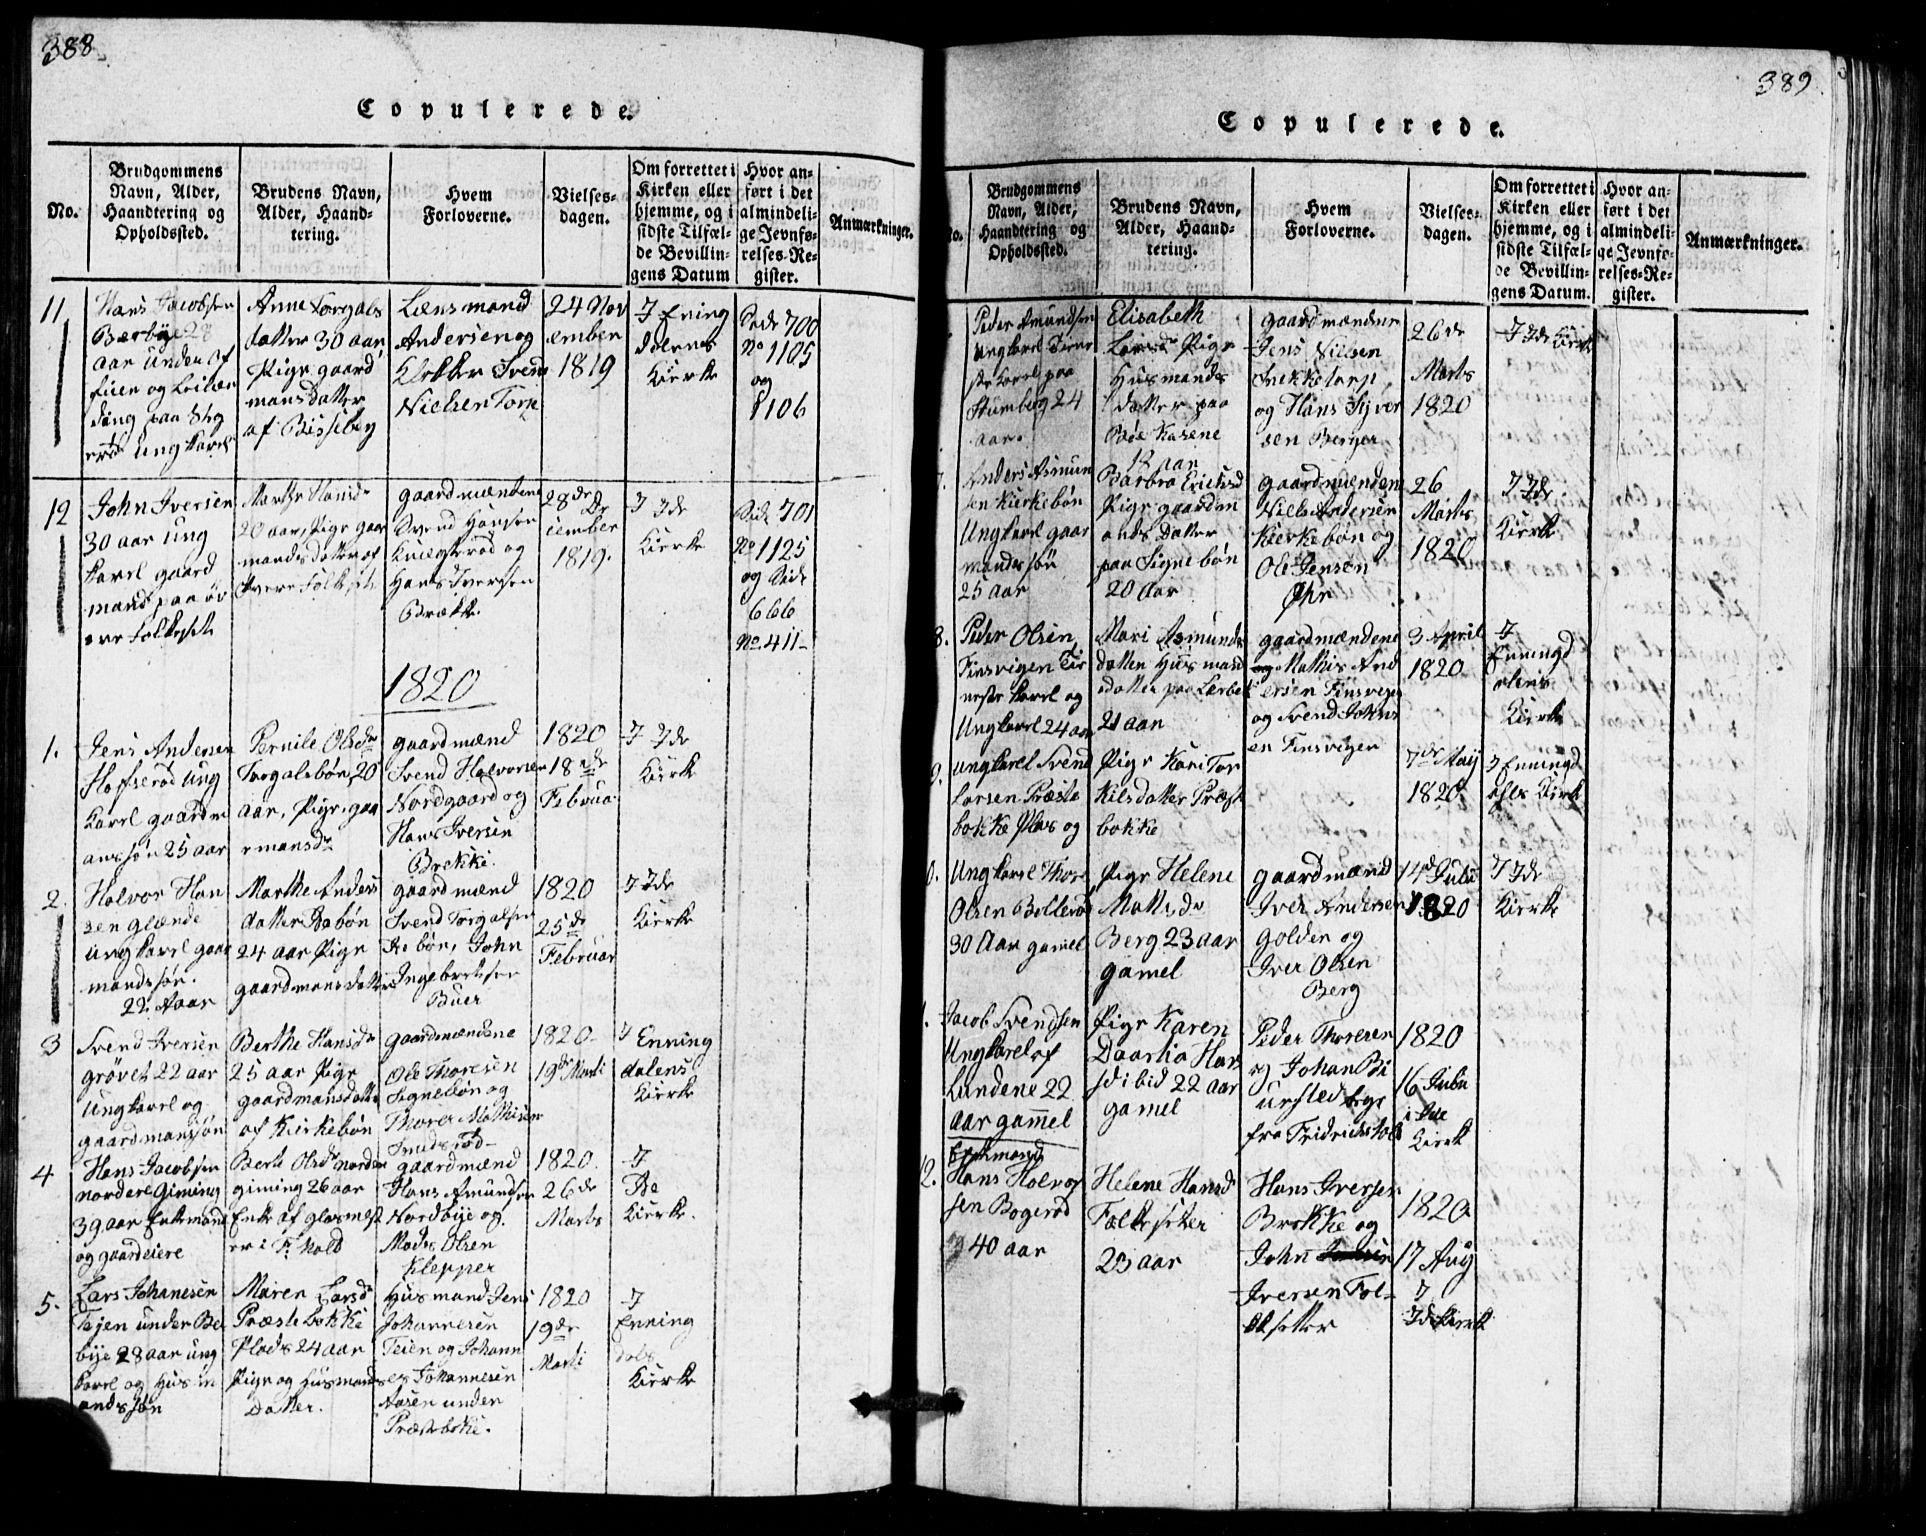 388
Copulerede.
No.
Brudgommens
Navn, Alder,
Haandtering og
Opholdssted.
Brudens Navn,
Alder, Haand-
tering.
Hvem
Forloverne.
Vielses-
dagen.
Om forrettet i
Kirken eller
hjemme, og i
sidste Tilfæl-
de Bevillin-
gens Datum
Hvor an-
ført i det
almindeli-
ge Jevnfø-
relses-Re-
gister.
Anmærkninger.
11
Hans Jacobsen
Berbye 28
aar under of
ficer og
paa
ungkarl
Anne Torgals
datter 30 aar
Pige gaard
mans datter
af Bisseberg
Lænsmand
Andersen og
Klokker Svend
Nielsen Torp
24 Nov
ember
1819
I Ening
dalens
Kierke
Side 700
No 1105
og
1106
12
John Iversen
30 aar ung
karl gaard
mand paa öv
ere Folkeset
Marthe Hansdr
20 aar, Pige gaar
mandsdatter af
øvere Folkeset
gaardmændene
Svend Hansen
Knægterød og
Hans Iversen
Brække.
28de De
cember
1819.
I Ide
Kierke
Side 701
No 1125
og Side
666
No. 411-
1820
1.
Jens Andersen
Hofserød ung
Karl gaardm
ans søn 25 aar
Pernile Olsdr
Torgalsbøn, 20
aar, Pige, gaa
rmansdr
gaardmænd
Svend Halvorsen
Nordgaard og
Hans Iversen
Brekke.
1820
18de
Februar
I Ide
Kierke
2.
Halvor Han
sen Glænde
ungkarl gaar
mandssøn.
22 Aaar
Marthe Anders
datter Asbøn
24 aar Pige
gaardmansdatter
gaardmænd
Svend Torgalsen
Asbøn, John
Ingebretsen
Buer
1820
25de
Februar
I Ide
Kierke
3
Svend Iversen
grøvet 22 aar
Ungkarl og
gaardmanssøn
Berthe Hansdr
25 aar Pige
gaardmansdatter
af Kirkebøn
gaardmændene
Ole Thoresen
Signebøn og
Thorer Mathisen
1820-
19de Marti
I Enning
dalens
Kierke
4
Hans Jacobsen
nordre Giming
39 aar Enkemand
og gaardeiere
Berte Olsdr nordre
giming 26 aar
Enke af glasmest
er i Fr. hald
gaardmænd
Hans Amundsen
Nordbye og
Mads Olsen
Klepper
1820.
26de
Marts
I
Ide
Kierke.
5.
Lars Johanesen
Tejen under Be
bye 28 aar ung
karl og Hus m
ands søn
Maren Larsdr
Præstebakke
Plads 24 aar
Pige og Husmands
Datter.
Husmand Jens
Johannesen
Teien og Johann
es Johannesen
Aasen under
Præstebakke.
1820
19de
Marti
I
Enning
dals
Kierke
389
Copulerede.
No.
Brudgommens
Navn, Alder,
Haandtering og
Opholdssted.
Brudens Navn,
Alder, Haand-
tering.
Hvem
Forloverne.
Vielses-
dagen.
Om forrettet i
Kirken eller
hjemme, og i
sidste Tilfæl-
de Bevillin-
gens Datum.
Hvor an-
ført i det
almindeli-
ge Jevnfø-
relses-Re-
gister.
Anmærkninger.
Peder Amundsen
Ungkarl Tiene
ste karl paa
Stumberg 24
aar.
Elisabeth
Larsdr Pige
Husmands
datter paa
Böe Kasene
18 aar
gaardmændene
Jens Nilsen
Snekketorp,
og Hans Syver
sen Berger
26de
Marts
1820
I Ide Kierke
7.
Anders Asmun
sen Kierkebøn
Ungkarl gaar
mands søn
25 aar
Barbra Erichsd
Pige gaardm
ands Datter
paa Signebøn
20 Aar
gaardmændene
Niels Andersen
Kierkebøn og
Ole Jensen
Øhr
26
Marts
1820
I Ide
Kierke
8.
Peder Olsen
Finsvigen Tie
neste karl og
Ungkarl 24 aar
Mari Asmunds
datter Husmand
sdatter paa Lerbek
21 aar
gaardmændene
Mathis And
ersen Finsvigen
og Svend Johns
en Finsvigen
3 April
1820
I
Enningd
alens
Kierke
9.
ungkarl Svend
Larsen Præste
bakke Plas og
Pige Kari Tor
kilsdatter Præst
bakke
7de Maij
1820.
I Enningd
als Kierk
0.
Ungkarl Thore
Olsen Bøllerød
30 Aar gamel
Pige Helene
Matts dr
Berg 23 aar
gamel
gaardmænd
Iver Andersen
Golden og
Iver Olsen
Berg
14de Julii
1820
I Ide
Kierke
1.
Jacob Svendsen
Ungkarl af
Lundene 22
aar gammel
Pige Karen
Daarthia Hans
d ibid 22 aar
gamel
Peder Thoresen
og Johan
fra Fridrichstad
1820
16 Julii
i Ide
Kierk
12.
Enkmand
Hans Halvor
sen Bøgerød
40 aar
Helene Hansd
Falkesetter
23 aar
Hans Iversen
Brekke og
John
Iversen Fol-
kesetter
1820
17 Aug
I
Ide Kierk